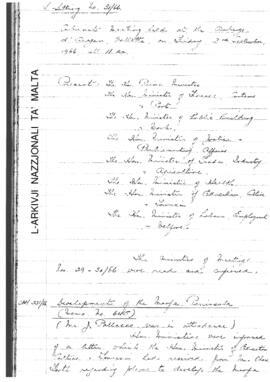 Sitting No. 31/66.
Cabinet Meeting held at the Auberge
d'Aragon, Valletta on Friday 2nd September,
1966 at 11 a.m.
Present: The Hon. Prime Minister
The Hon. Minister of Finance, Customs
& Port
The Hon. Minister of Public Building
& Works
The Hon. Minister of Justice &
Parliamentary Affairs
The Hon. Minister of Trade, Industry
& Agriculture
The Hon. Minister of Health
The Hon. Minister of Education, Culture
& Tourism
The Hon. Minister of Labour, Employment
& Welfare.
L-ARKIVJI NAZZJONALI TA' MALTA
The Minutes of Meetings
Nos. 29 - 30/66 were read and approved.
Development of the Marfa Peninsula
(Memo No.
(Mr. J. was in attendance)
Hon. Ministers were informed
of a letter which the Hon. Minister of Education
Culture & Tourism had received from Mr.
regarding plans to develop the Marfa